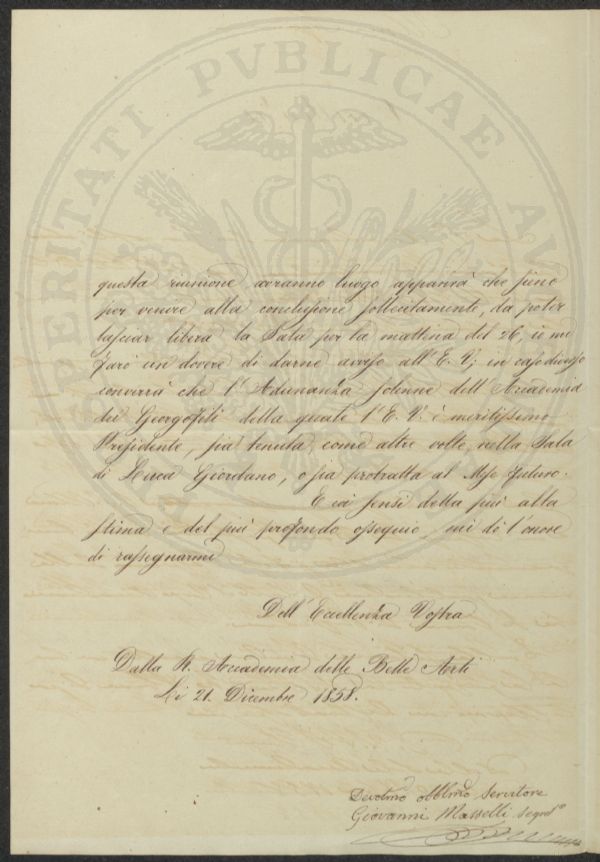 PROSPERITATI PVBLICAE AV
questa riunione avranno luogo apparirà che siino
per venire alla conclusione sollecitamente, da poter
lasciar libera la Sala per la mattina del 26, io mi
farò un dovere di darne avviso all'E. V; in caso diverso
converrà che l'Adunanza solenne dell'Accademia
dei Georgofili della quale l'E. V. è meritissimo
Presidente, sia tenuta, come altre volte, nella Sala
di Luca Giordano, o sia protratta al Mese futuro.
E coi sensi della più alta
stima e del più profondo ossequio mi dò l'onore
di rassegnarmi
Dell'Eccellenza Vostra
Dalla R. Accademia delle Belle Arti
Li 21. Dicembre 1858.
Devotmo obblmo Servitore
Giovanni Masselli Segrio